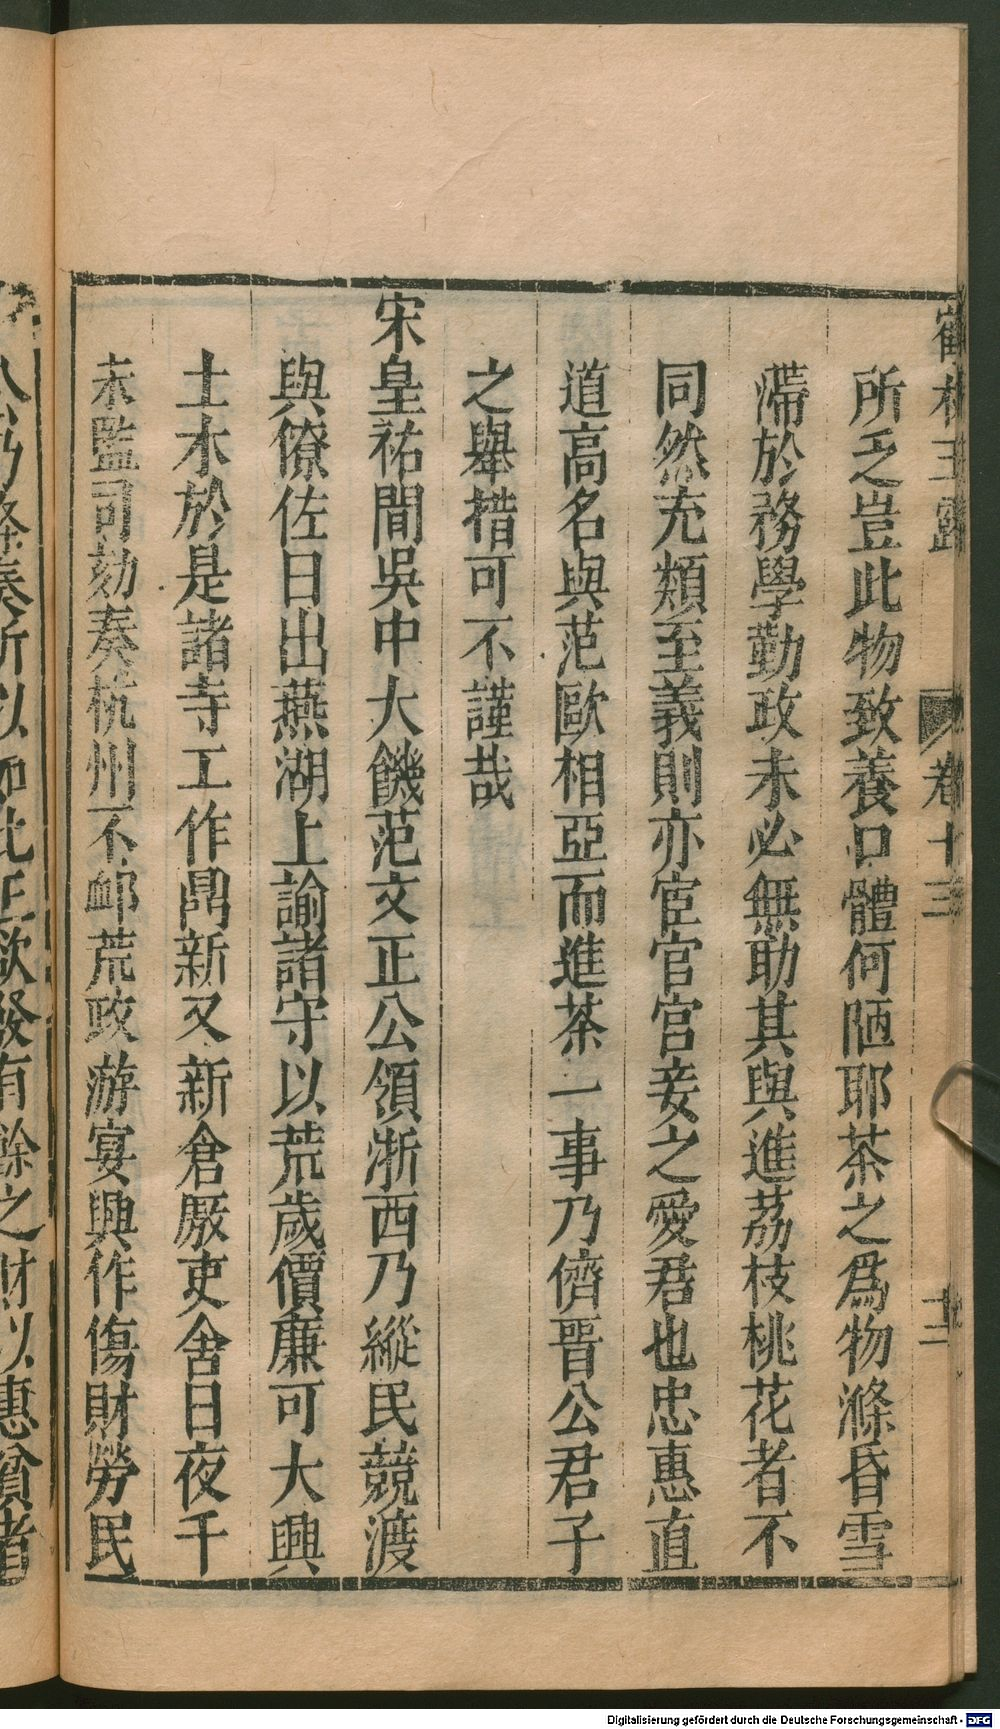 鶴林玉露 卷十三 十二
所乏豈此物致養口體何陋耶茶之爲物滌昏雪
滯於務學勤政未必無助其與進荔枝桃花者不
同然充類至義則亦宦官宮妾之愛君也忠惠直
道高名與范歐相亞而進茶一事乃儕晋公君子
之舉措可不謹哉
宋皇祐間吳中大饑范文正公領浙西乃縱民競渡
與僚佐日出燕湖上諭諸守以荒歲價廉可大興
土木於是諸寺工作鼎新又新倉厫吏舍日夜千
夫監司劾奏杭州不䘏荒政游宴興作傷財勞民
公乃條奏所以如此正欲發有餘之財以惠貧者
Digitalisierung gefördert durch die Deutsche Forschungsgemeinschaft - DFG